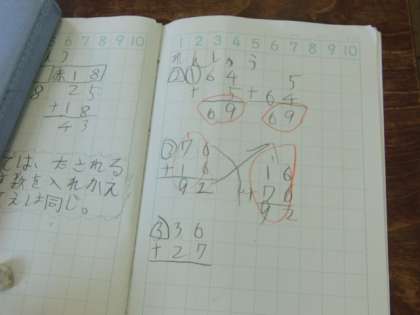 6 7 8 9 10
1 8
2 5
+ 1 8
4 3
は、たされる
数を入れかえ
は同じ。
1 2 3 4 5 6 7 8 9 10
② ① 6 4
+ 5
6 9
5
+ 6 4
6 9
② 7 6
+ 1 6
9 2
1 6
+ 7 6
9 2
③ 3 6
+ 2 7